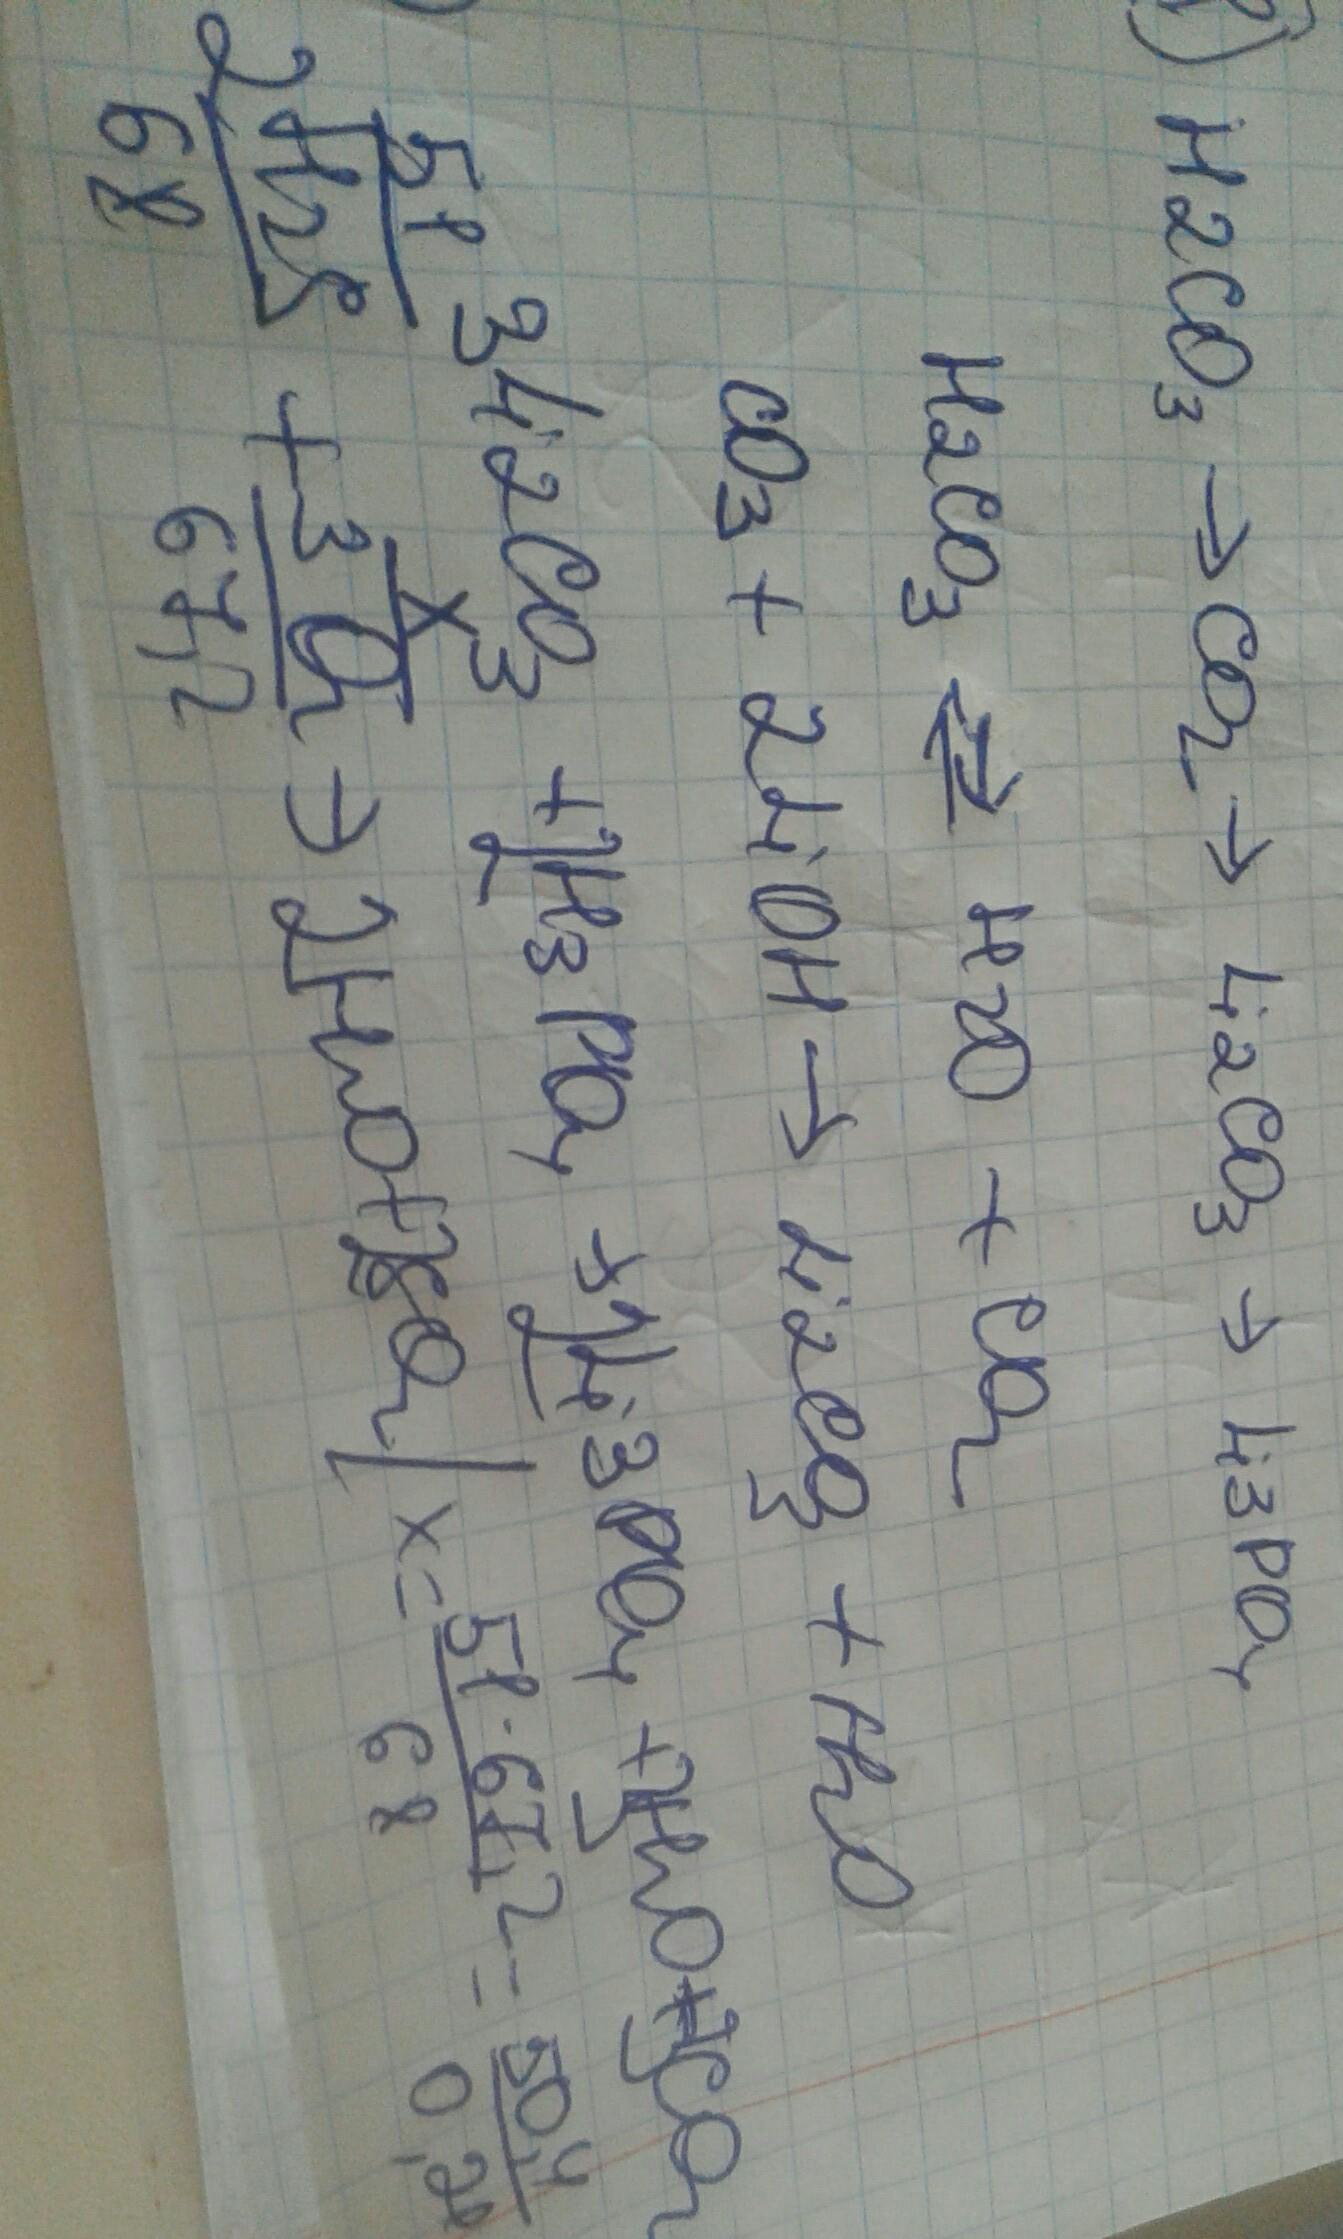 ) H2CO3 → CO2 → Li2CO3 → Li3PO4
H2CO3 ⇄ H2O + CO2
CO3 + 2LiOH → Li2CO3 + H2O
3Li2CO3 + 2H3PO4 → 2Li3PO4 + 3H2O + 3CO2
51 x
2H2S + 3O2 → 2H2O + 2SO2 | x = 51 · 67,2 / 68 = 50,4 / 0,22
68 67,2